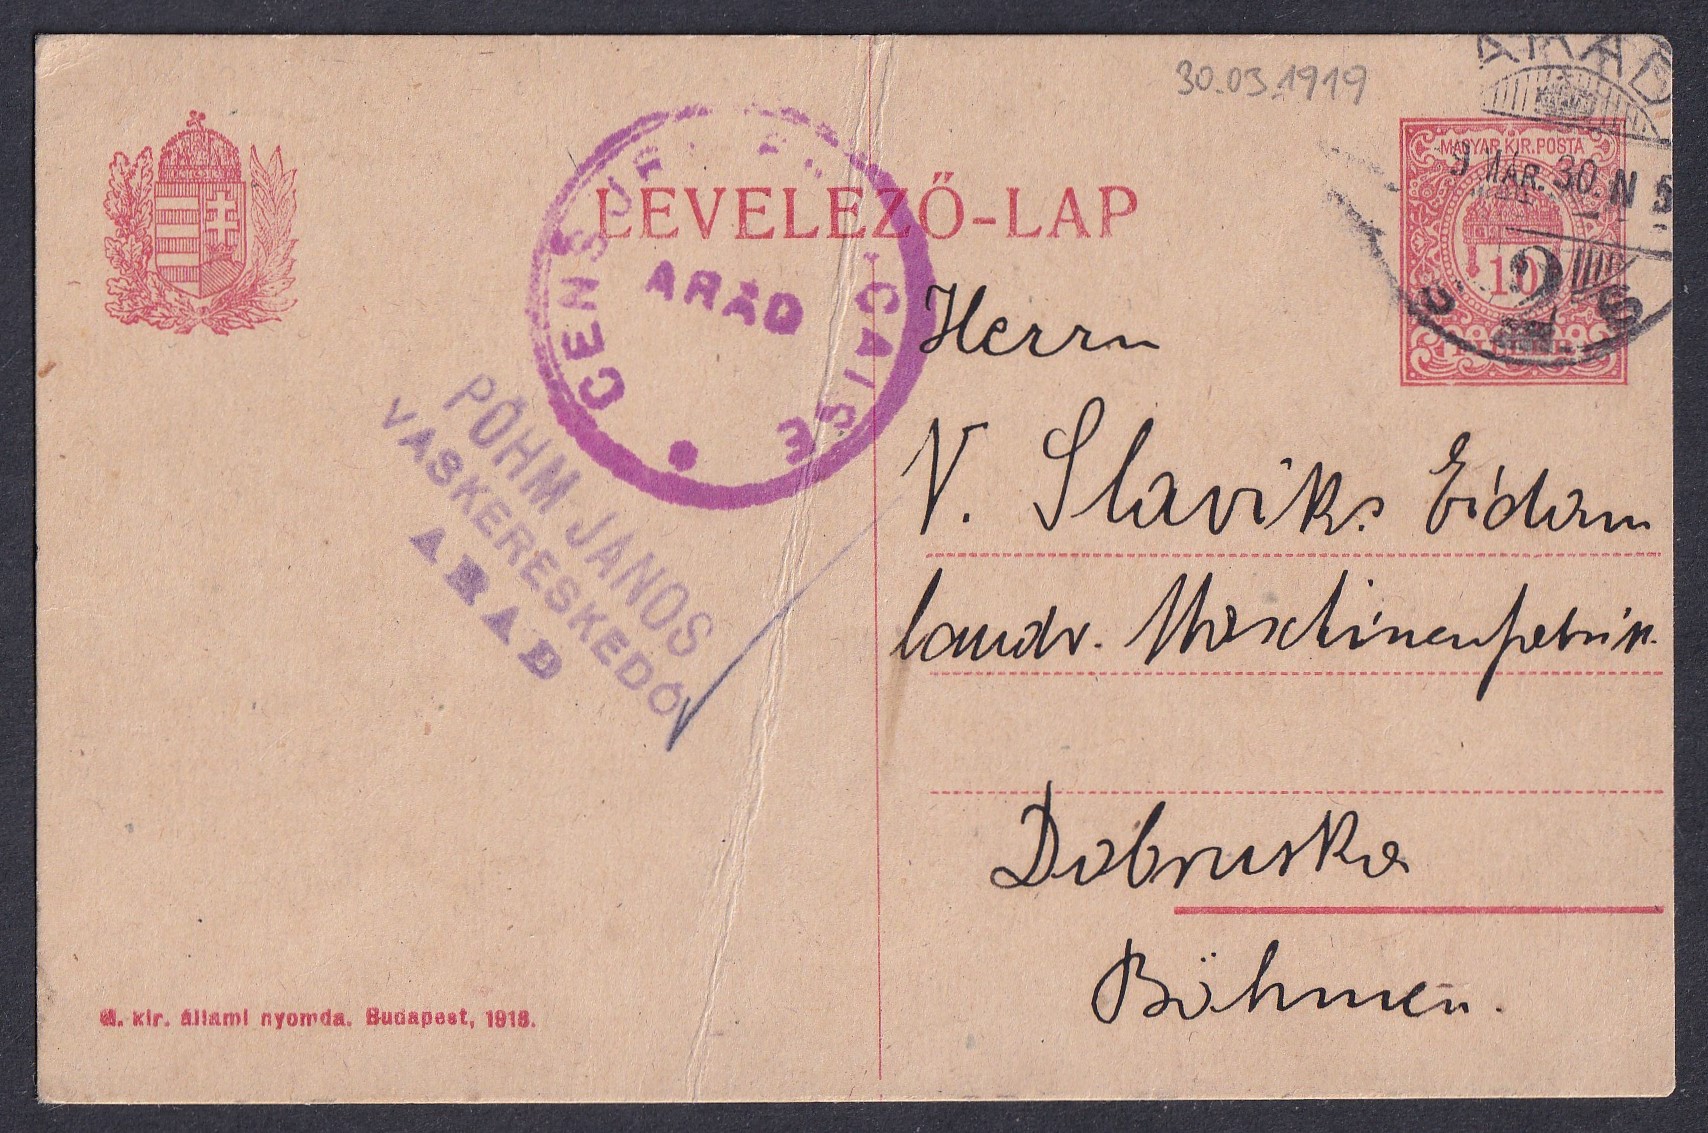 30.03.1919
ARAD
MAGYAR KIR. POSTA
9 MÁR. 30. N 5
10
2
LEVELEZŐ-LAP
CENSUR
ARAD
PŐHM JÁNOS
VASKERESKEDŐ
ARAD
Herrn
V. Slaviks Eidam
landv. Maschinenfabrik.
Dobruska
Böhmen.
M. kir. állami nyomda. Budapest, 1918.